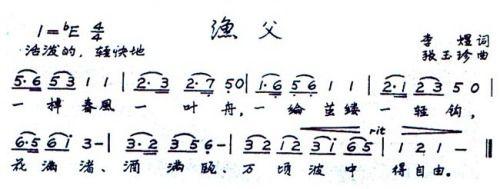 渔父
1=ᵇE 4/4
李煜词
活泼的，轻快地
张玉珍曲
5·6 5 3 1 1 | 2·3 2·7 5 0 | 1·6 5 6 1 1 | 2·1 2 3 5 0 |
一棹春風一叶舟，一纶茧缕一轻钩，
6·5 6 1 3- | 3·2 3 5 6- | 3 2 1 2 3 1 6 5 | 1 2 1 - ‖
rit
花满渚、酒满瓯、万顷波中得自由。